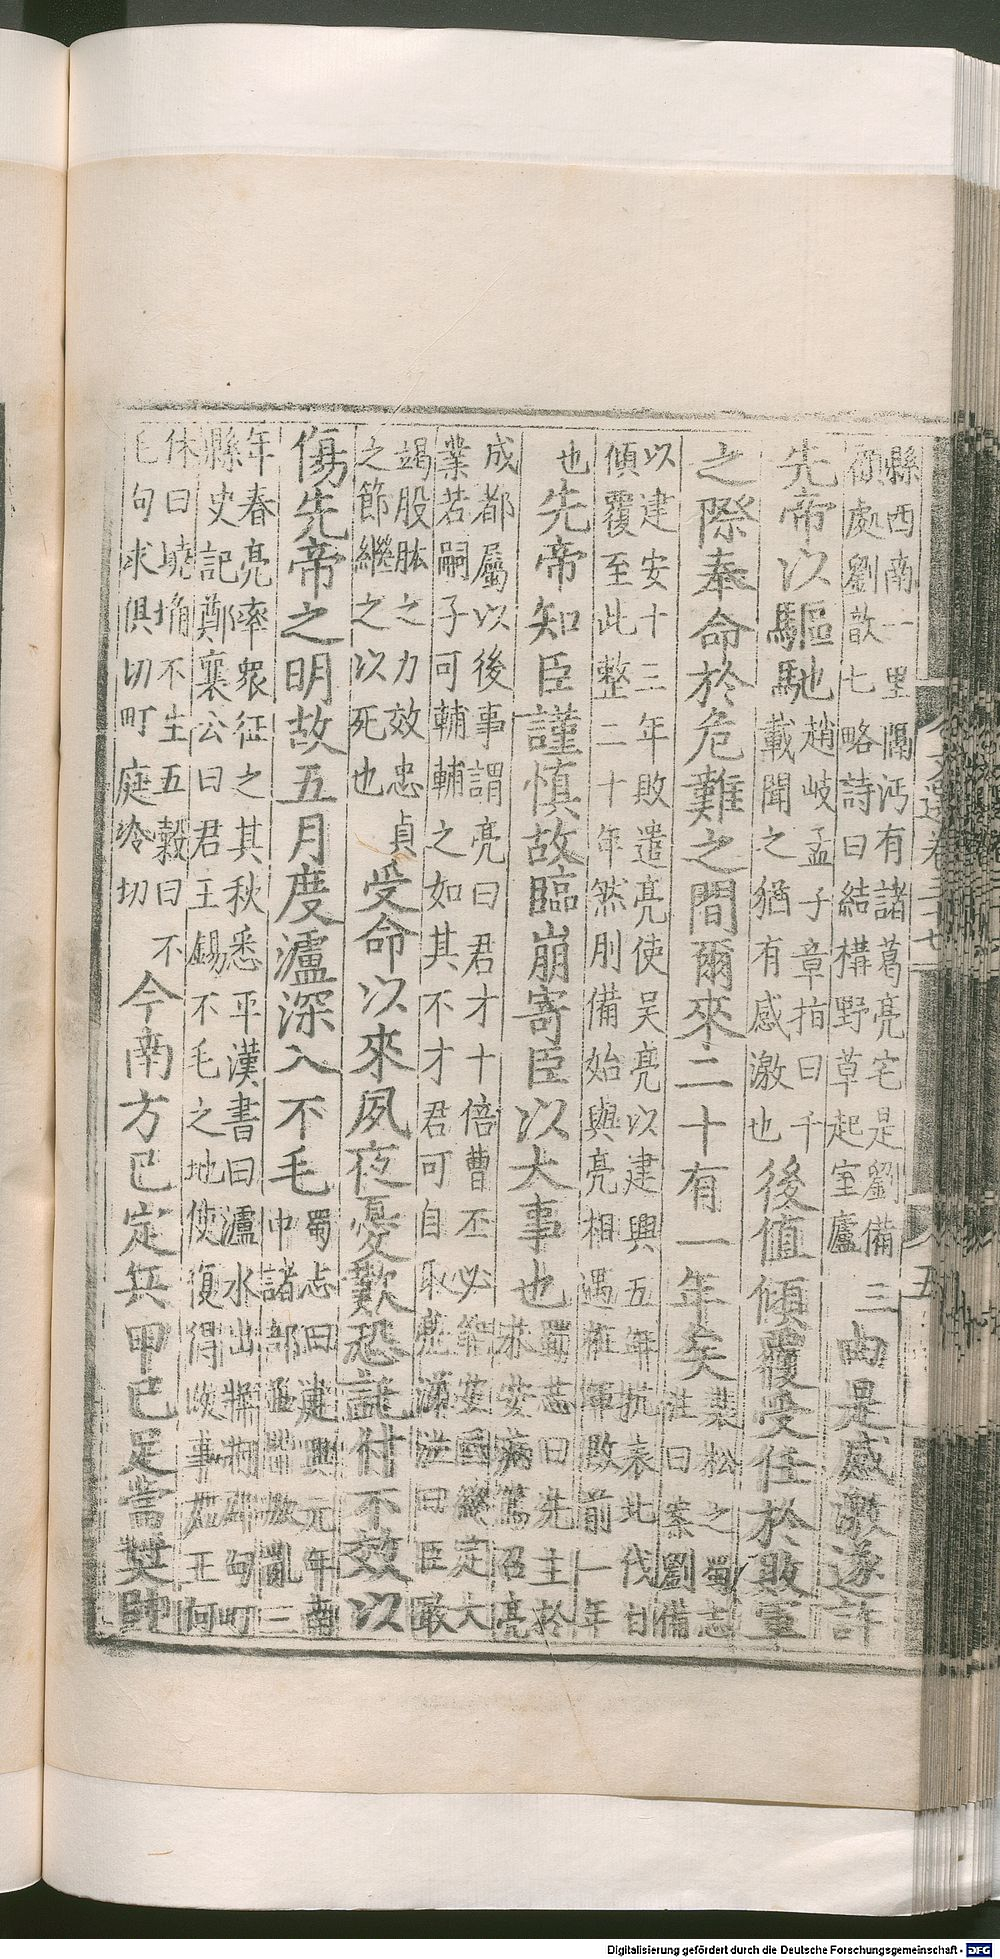 縣西南一里隔沔有諸葛亮宅是劉備三
顧處劉歆七略詩曰結構野草起室廬
由是感激遂許
先帝以驅馳
趙岐孟子章指曰千
載聞之猶有感激也
後值傾覆受任於敗軍
之際奉命於危難之間爾來二十有一年矣
裴松之蜀志
注曰案劉備
以建安十三年敗遣亮使吳亮以建興五年抗表北伐自
傾覆至此整二十年然則備始與亮相遇在軍敗前一年
也
先帝知臣謹慎故臨崩寄臣以大事也
蜀志曰先主於
永安病篤召亮
成都屬以後事謂亮曰君才十倍曹丕必能安國終定大
業若嗣子可輔輔之如其不才君可自取亮涕泣曰臣敢
竭股肱之力效忠貞
之節繼之以死也
受命以來夙夜憂歎恐託付不效以
傷先帝之明故五月度瀘深入不毛
蜀志曰建興元年南
中諸郡並皆叛亂三
年春亮率眾征之其秋悉平漢書曰瀘水出牂牁郡句町
縣史記鄭襄公曰君王錫不毛之地使復得改事君王何
休曰墝埆不生五穀曰不
毛句求俱切町庭冷切
今南方已定兵甲已足當奬帥
文選卷三十七
五
Digitalisierung gefördert durch die Deutsche Forschungsgemeinschaft - DFG